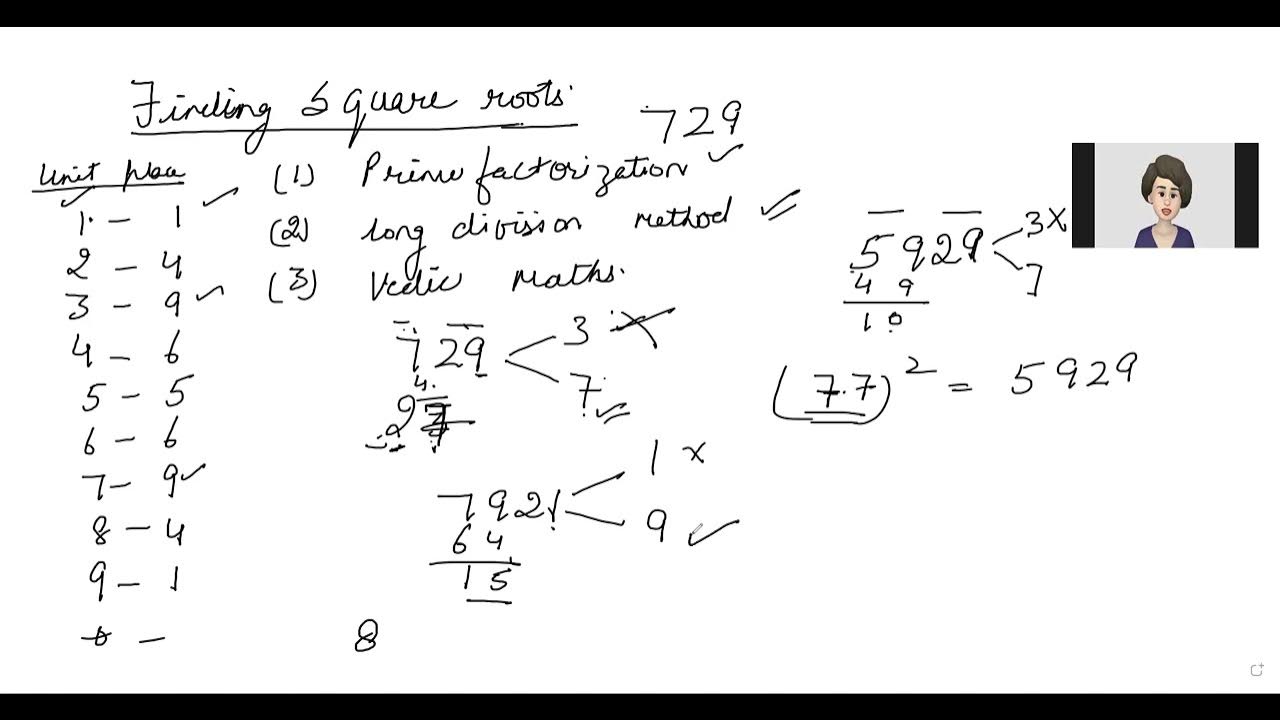 Finding Square roots.
729
Unit place
1 - 1
2 - 4
3 - 9
4 - 6
5 - 5
6 - 6
7 - 9
8 - 4
9 - 1
0 -
(1) Prime factorization
(2) long division method
(3) Vedic Maths.
729
3
7
4
2
7921
1
9
64
15
8
5929
3x
7
49
10
(7.7)² = 5929